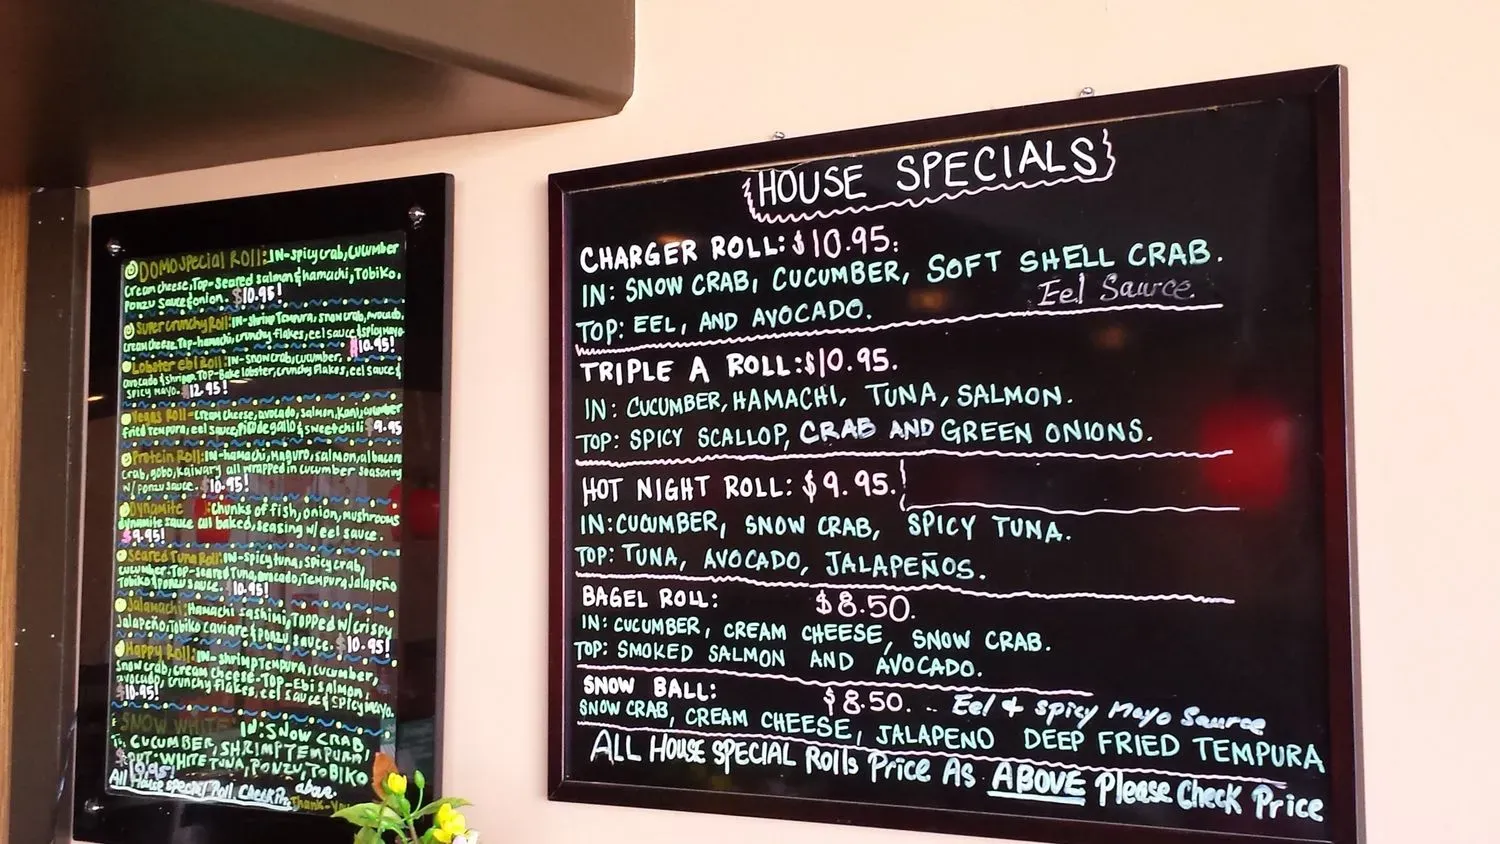 DOMO Special Roll: IN-spicy crab, cucumber
Cream cheese, Top-seared salmon & hamachi, Tobiko,
Ponzu sauce & onion. $10.95!
Super crunchy Roll: IN-shrimp Tempura, snow crab, avocado,
cream cheese, Top-hamachi, crunchy flakes, eel sauce & spicy mayo
$10.95!
Lobster ebi Roll: IN-snow crab, cucumber,
avocado & shrimp, TOP-Bake lobster, crunchy flakes, eel sauce &
spicy mayo. $12.95!
Vegas Roll-cream cheese, avocado, salmon, kani, cucumber
fried tempura, eel sauce, Pico de gallo & sweet chili $9.95
Protein Roll: IN-hamachi, maguro, salmon, albacore
Crab, gobo, kaiware all wrapped in cucumber seasoning
w/ ponzu sauce. $10.95!
Dynamite : Chunks of fish, onion, mushrooms
dynamite sauce all baked, seasing w/ eel sauce.
$9.95!
Seared Tuna Roll: IN-spicy tuna, spicy crab,
cucumber-Top-seared Tuna, avocado, Tempura Jalapeño
Tobiko & ponzu sauce. $10.95!
Jalamachi: Hamachi sashimi, Topped w/ crispy
Jalapeño, Tobiko caviar & ponzu sauce. $10.95!
Happy Roll: IN-shrimp Tempura, cucumber,
snow crab, cream cheese-Top-Ebi salmon,
avocado, crunchy flakes, eel sauce & spicy mayo.
$10.95!
SNOW WHITE IN: SNOW CRAB,
CUCUMBER, SHRIMP TEMPURA
OUT: WHITE TUNA, PONZU, TOBIKO
10.95!
All House special Roll Check Price above.
Thank-You
HOUSE SPECIALS
CHARGER ROLL: $10.95.
IN: SNOW CRAB, CUCUMBER, SOFT SHELL CRAB.
Eel Saurce
TOP: EEL, AND AVOCADO.
TRIPLE A ROLL: $10.95.
IN: CUCUMBER, HAMACHI, TUNA, SALMON.
TOP: SPICY SCALLOP, CRAB AND GREEN ONIONS.
HOT NIGHT ROLL: $9.95.
IN: CUCUMBER, SNOW CRAB, SPICY TUNA.
TOP: TUNA, AVOCADO, JALAPEÑOS.
BAGEL ROLL: $8.50.
IN: CUCUMBER, CREAM CHEESE, SNOW CRAB.
TOP: SMOKED SALMON AND AVOCADO.
SNOW BALL: $8.50. .. Eel & Spicy Mayo Saurce
SNOW CRAB, CREAM CHEESE, JALAPENO DEEP FRIED TEMPURA
ALL HOUSE SPECIAL Rolls Price As ABOVE Please Check Price